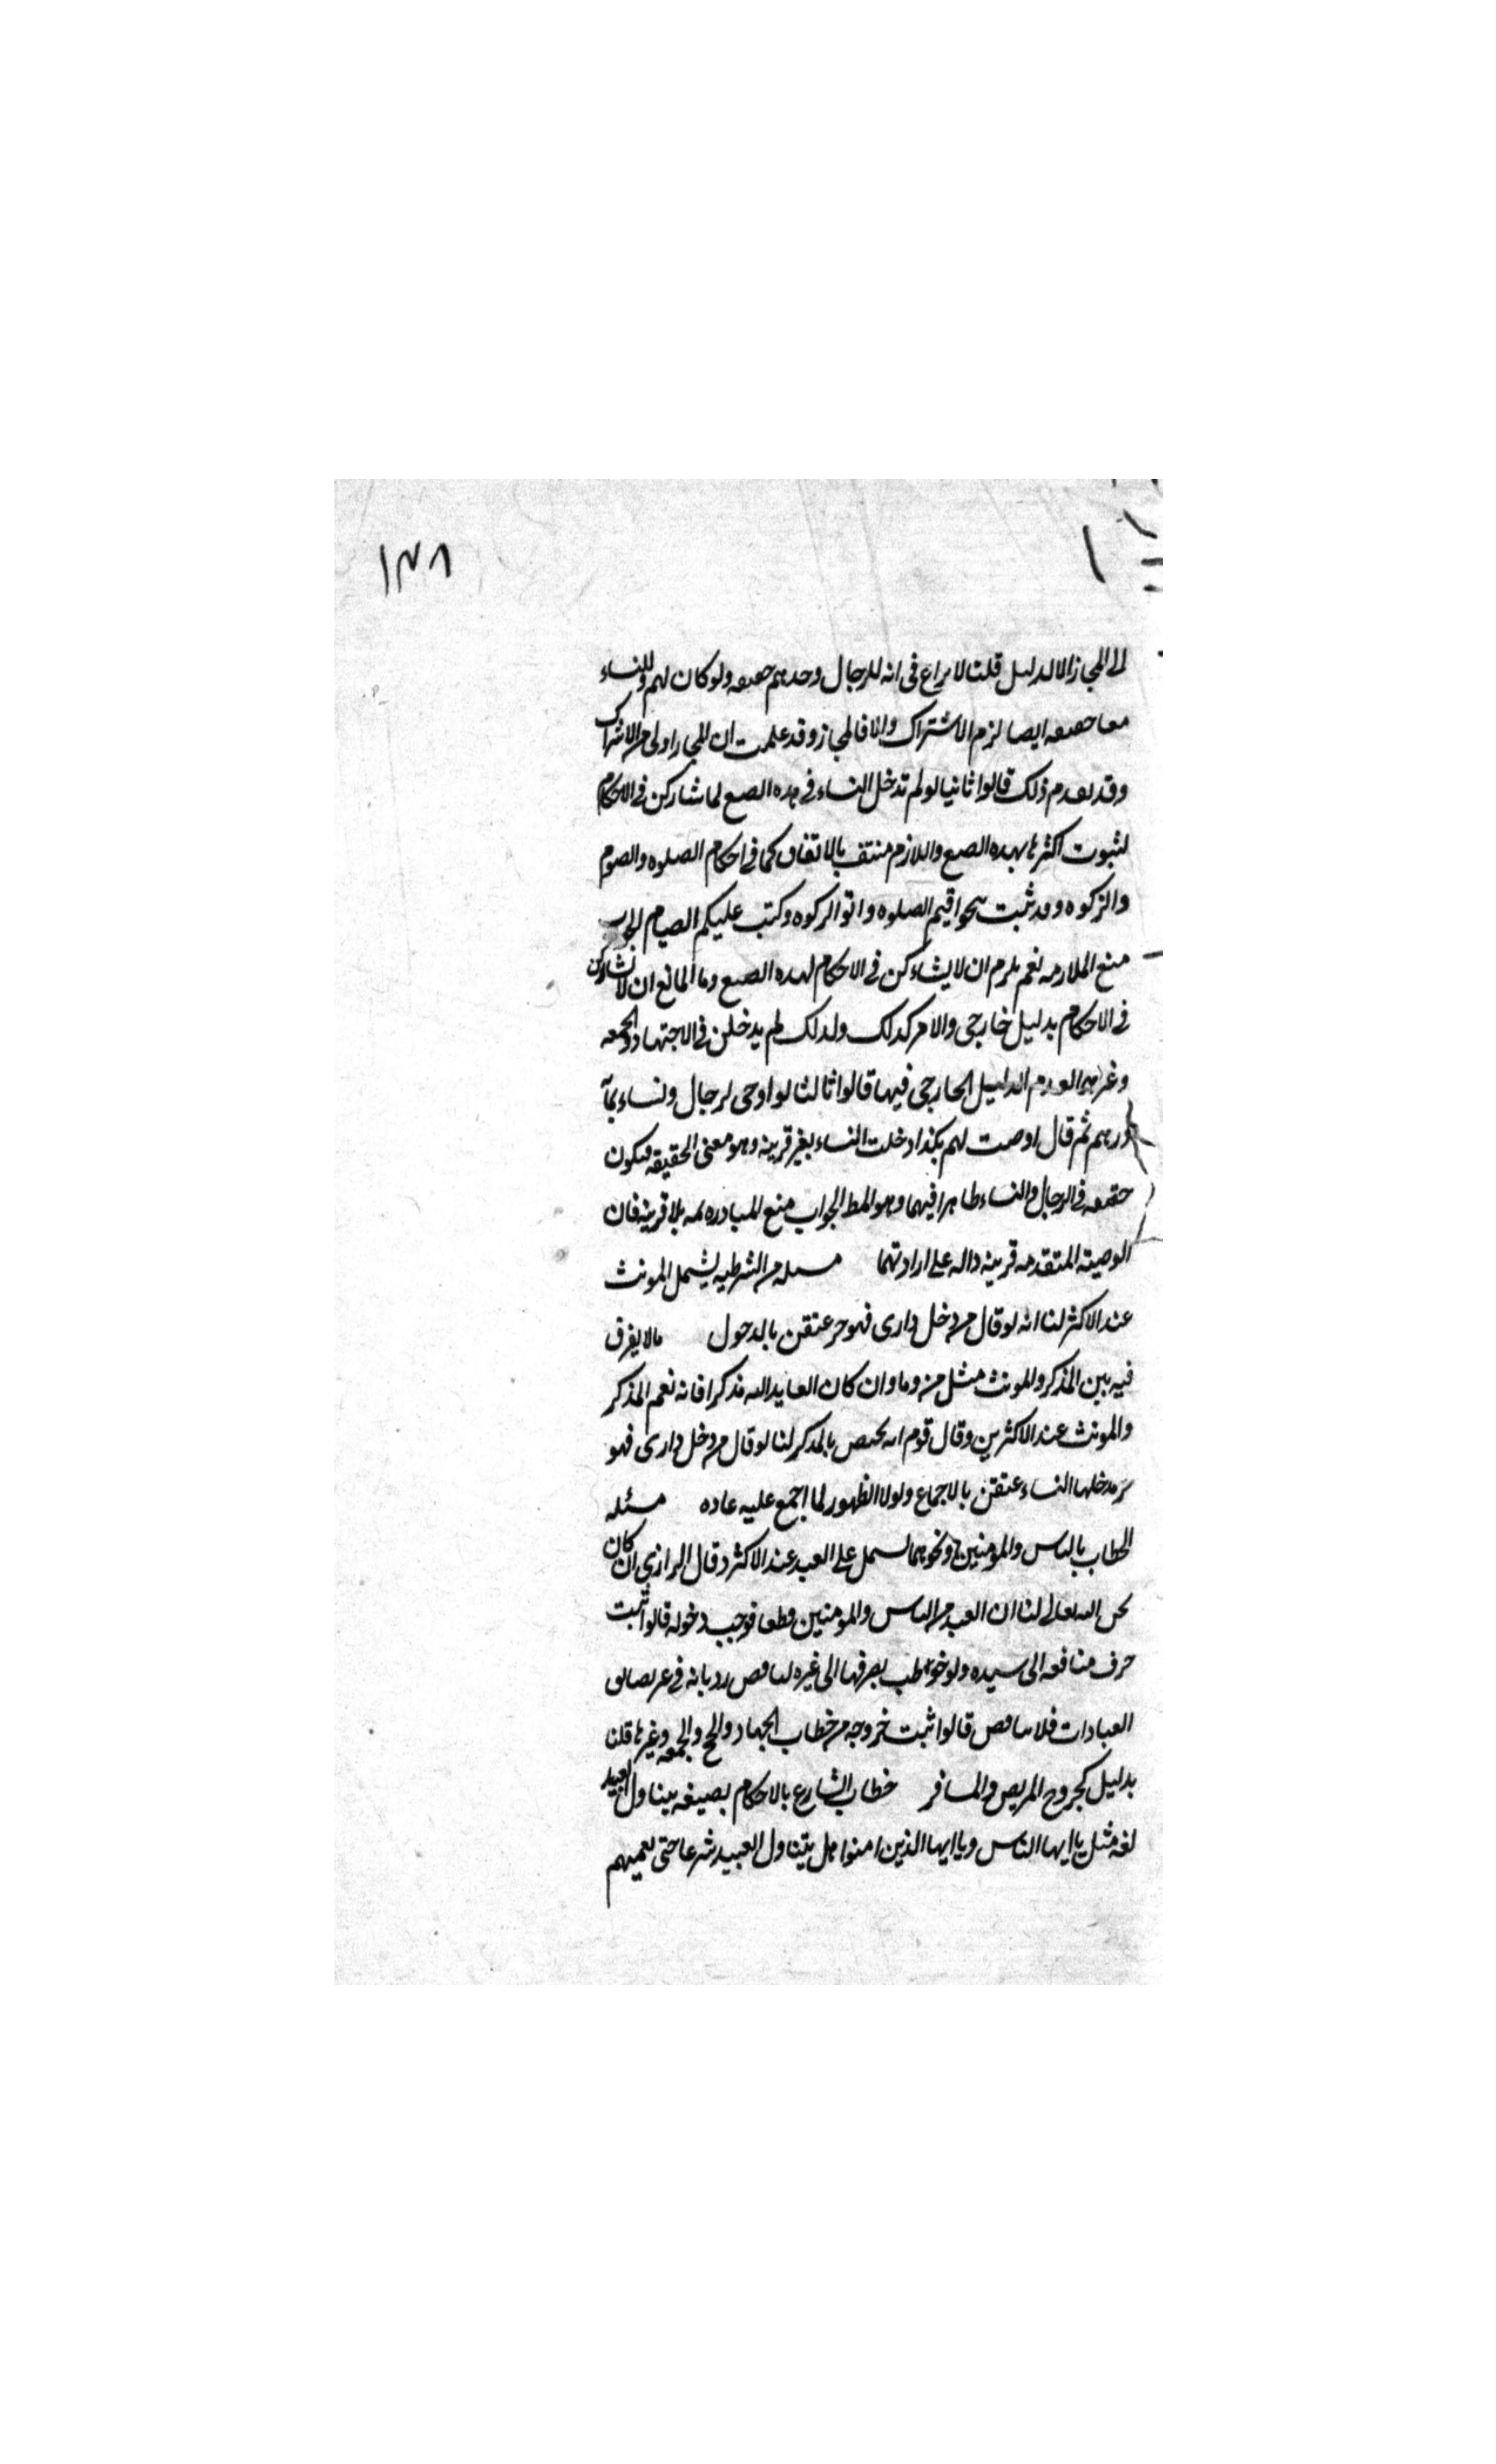 ١٣٨
الى المجاز الا لدليل قلنا لا نزاع فى انه للرجال وحدهم حقيقه ولو كان لهم وللنساء
معا حقيقه ايضا لزم الاشتراك والا فالمجاز وقد علمت ان المجاز اولى من الاشتراك
وقد تقدم ذلك قالوا ثانيا لو لم تدخل النساء فى هذه الصيغ لما شاركن فى الاحكام
لثبوت اكثرها بهذه الصيغ واللازم منتف بالاتفاق كما فى احكام الصلوه والصوم
والزكوه وقد ثبت بنحو اقيم الصلوه واتوا الزكوه وكتب عليكم الصيام الجواب
منع الملازمه نعم يلزم ان لا يشاركن فى الاحكام بهذه الصيغ وما المانع ان لا تشاركن
فى الاحكام بدليل خارجى والامر كذلك ولذلك لم يدخلن فى الاجتهاد والجمعه
وغيرهما لعدم الدليل الخارجى فيها قالوا ثالثا لو اوصى لرجال ونساء بمأة
درهم ثم قال اوصيت لهم بكذا دخلت النساء بغير قرينه وهو معنى الحقيقه فيكون
حقيقه فى الرجال والنساء ظاهرا فيهما وهو المط الجواب منع المبادره ثمه بلا قرينه فان
الوصيه المتقدمه قرينه داله على ارادتهما مسله من الشرطيه يشمل المونث
عند الاكثر لنا انه لو قال من دخل دارى فهو حر عتقن بالدخول مالا يفرق
فيه بين المذكر والمونث مثل من وما وان كان العايد اليه مذكرا فانه نعم المذكر
والمونث عند الاكثرين وقال قوم انه يختص بالمذكر لنا لو قال من دخل دارى فهو
حر فدخلها النساء عتقن بالاجماع ولولا الظهور لما اجمع عليه عاده مسئله
الخطاب بالناس والمؤمنين ونحوهما يشمل على العبد عند الاكثر وقال الرازى ان كان
لحق الله تعالى لنا ان العبد من الناس والمومنين قطعا فوجب دخوله قالوا ثبت
صرف منافعه الى سيده ولو خوطب بصرفها الى غيره لتناقض رد بانه فى غير تضايق
العبادات فلا تناقض قالوا ثبت خروجه من خطاب الجهاد والحج والجمعه وغيرها قلنا
بدليل كخروج المريض والمسافر خطاب الشارع بالاحكام بصيغه يتناول العبيد
لغه مثل يا ايها الناس ويا ايها الذين امنوا هل يتناول العبيد شرعا حتى يعميهم